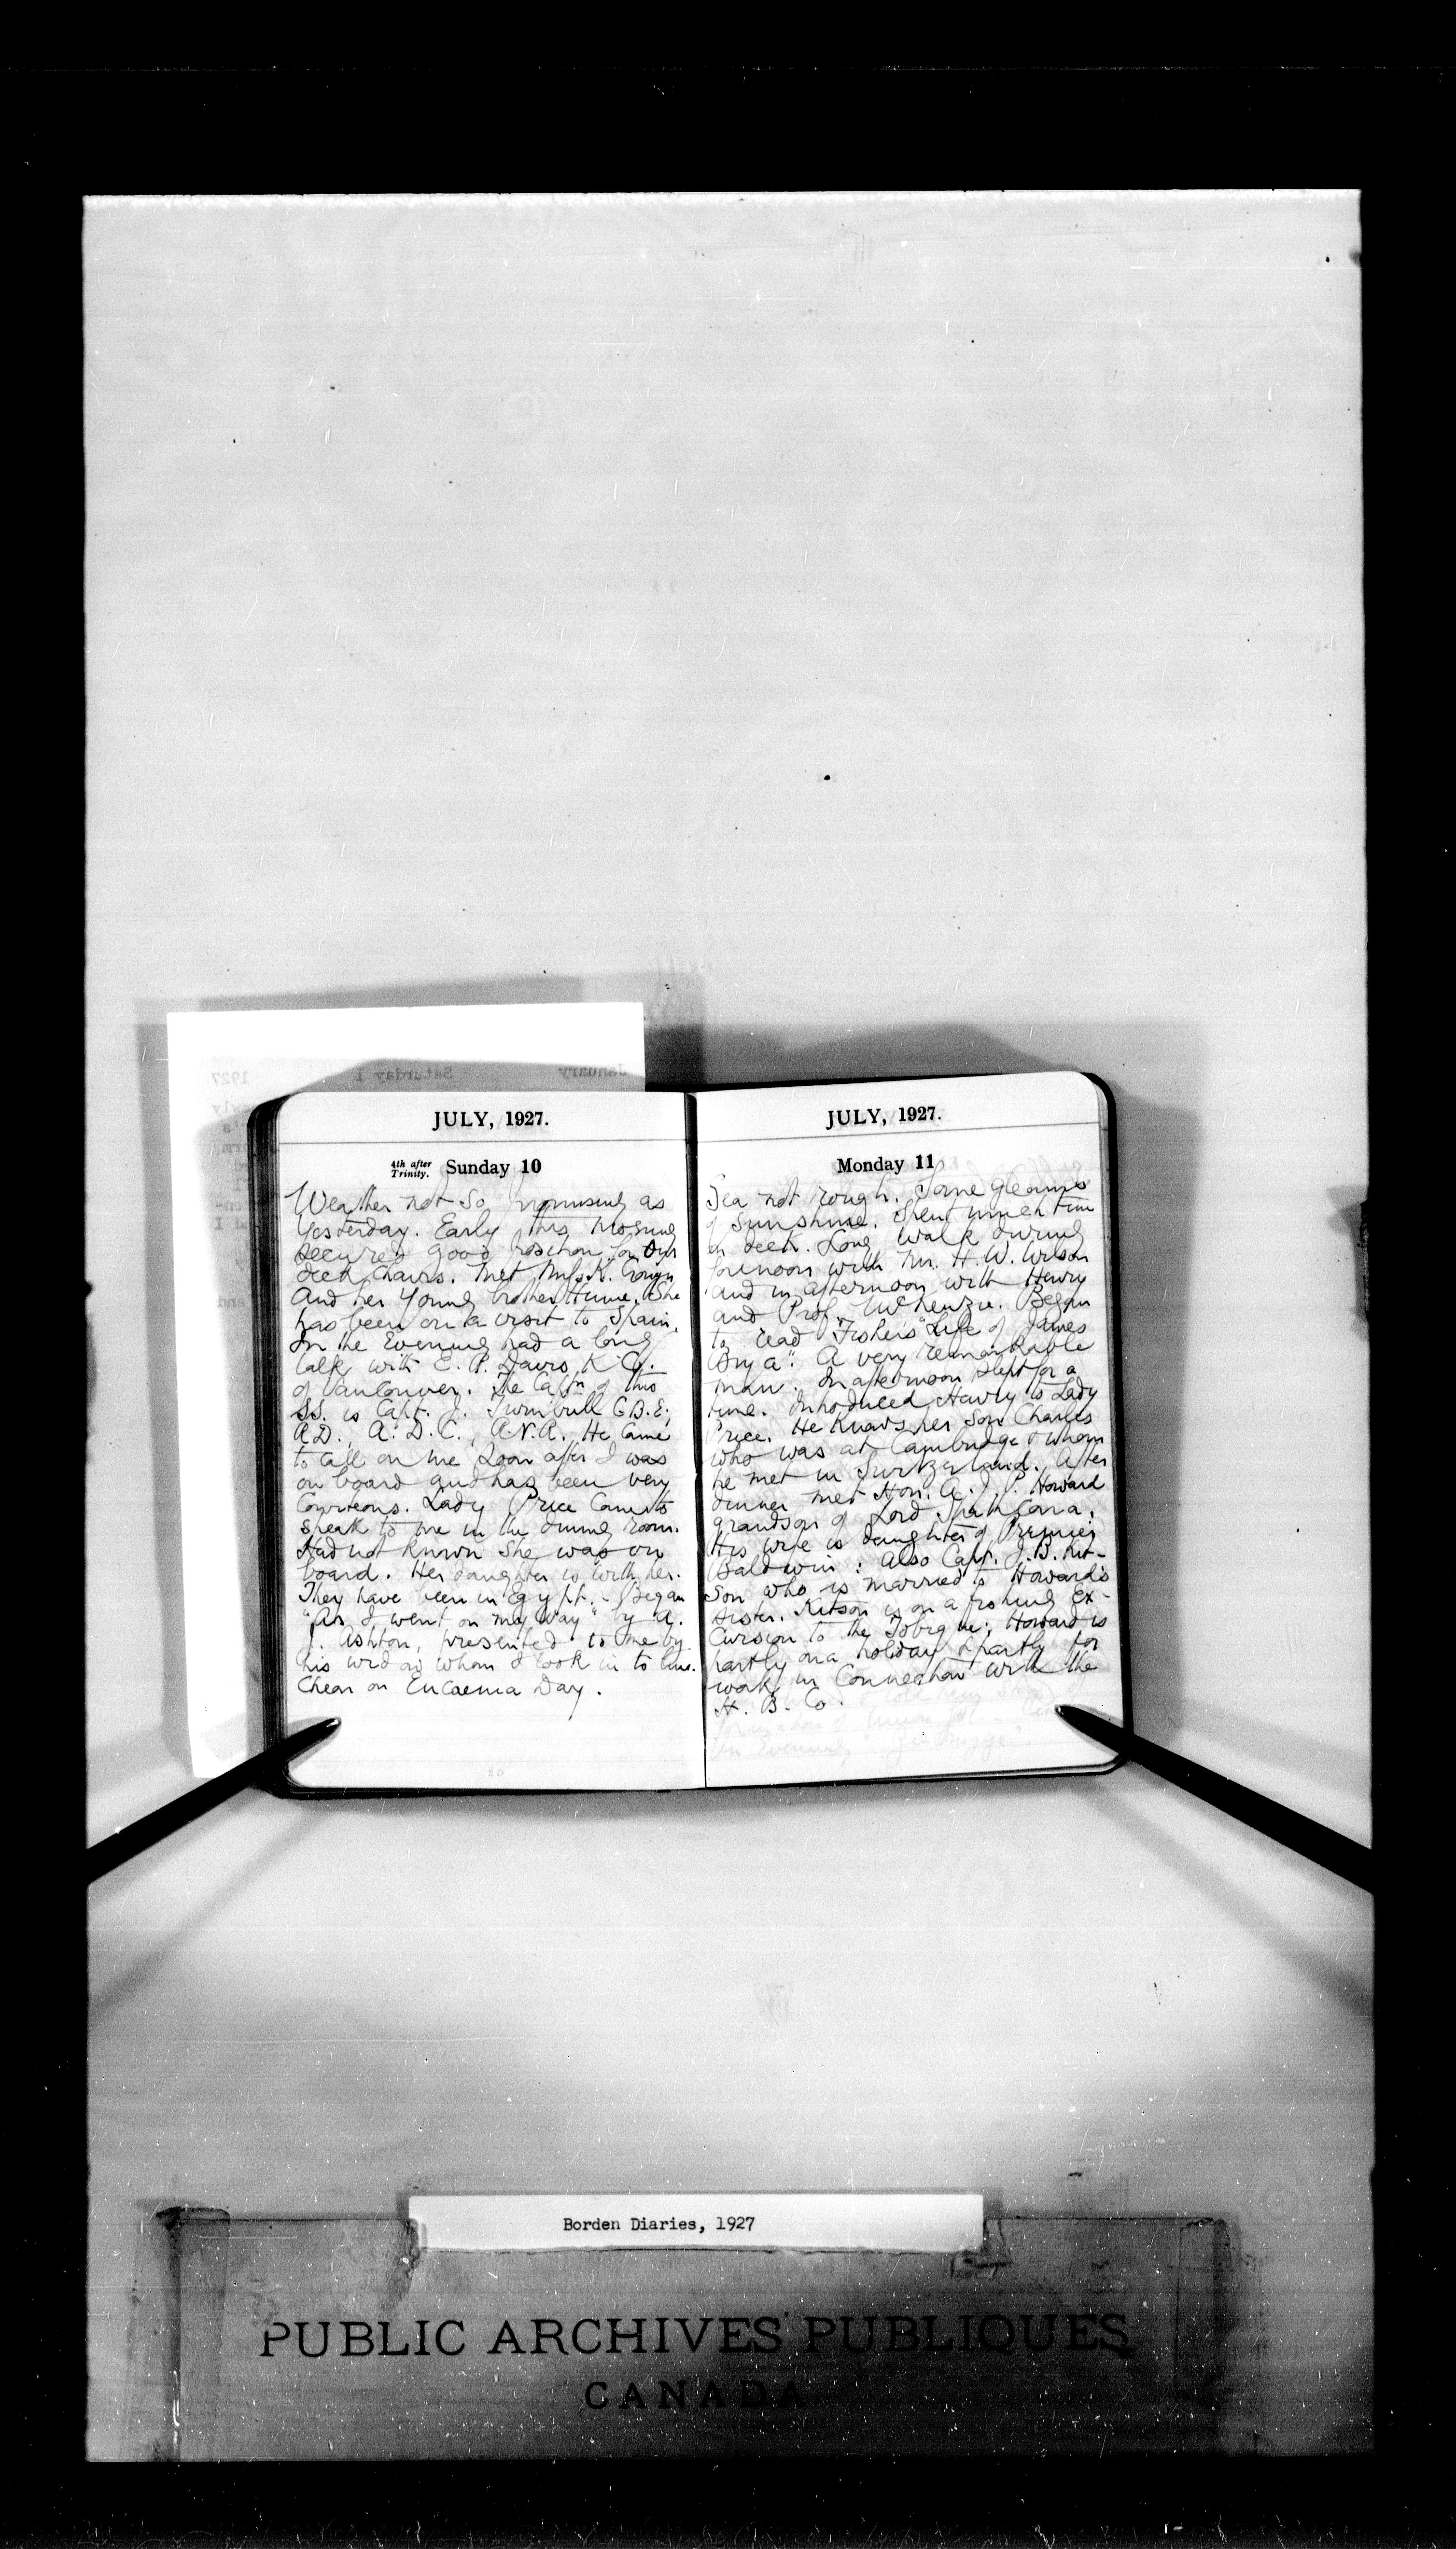 JULY, 1927.
4th after Trinity. Sunday 10
Weather not so promising as
yesterday. Early this morning
secured good position for our
deck chairs. Met Mrs. K.
and her young brother Hume. She
has been on a visit to Spain.
In the evening had a long
talk with E. P. Davis, K.C.
of Vancouver. The Captn of this
SS. is Capt. J. Turnbull C.B.E;
R.D., A.D.C., R.N.R. He came
to call on me soon after I was
on board and has been very
courteous. Lady Price came to
speak to me in the dining room.
Had not known she was on
board. Her daughter is with her.
They have been in Egypt. - Began
"As I went on my Way" by A.
J. Ashton, presented to me by
his widow whom I took in to lun-
cheon on Encaenia Day.
JULY, 1927.
Monday 11
Sea not rough. Some gleams
of sunshine. Spent much time
on deck. Long walk during
forenoon with Mr. H. W. Wilson
and in afternoon with Henry
and Prof. McKenzie. Began
to read Fisher's "Life of James
Bryce". A very remarkable
man. In afternoon slept for a
time. Introduced Henry to Lady
Price. He knows her son Charles
who was at Cambridge & whom
he met in Switzerland. After
dinner met Hon. A. J. P. Howard
grandson of Lord Strathcona;
His wife is daughter of Premier
Baldwin: Also Capt. J. B. Kit-
son who is married to Howard's
sister. Kitson is on a fishing ex-
cursion to the Tobique; Howard is
partly on a holiday & partly for
work in connection with the
H. B. Co.
January Saturday 1 1927
Borden Diaries, 1927
PUBLIC ARCHIVES PUBLIQUES
CANADA